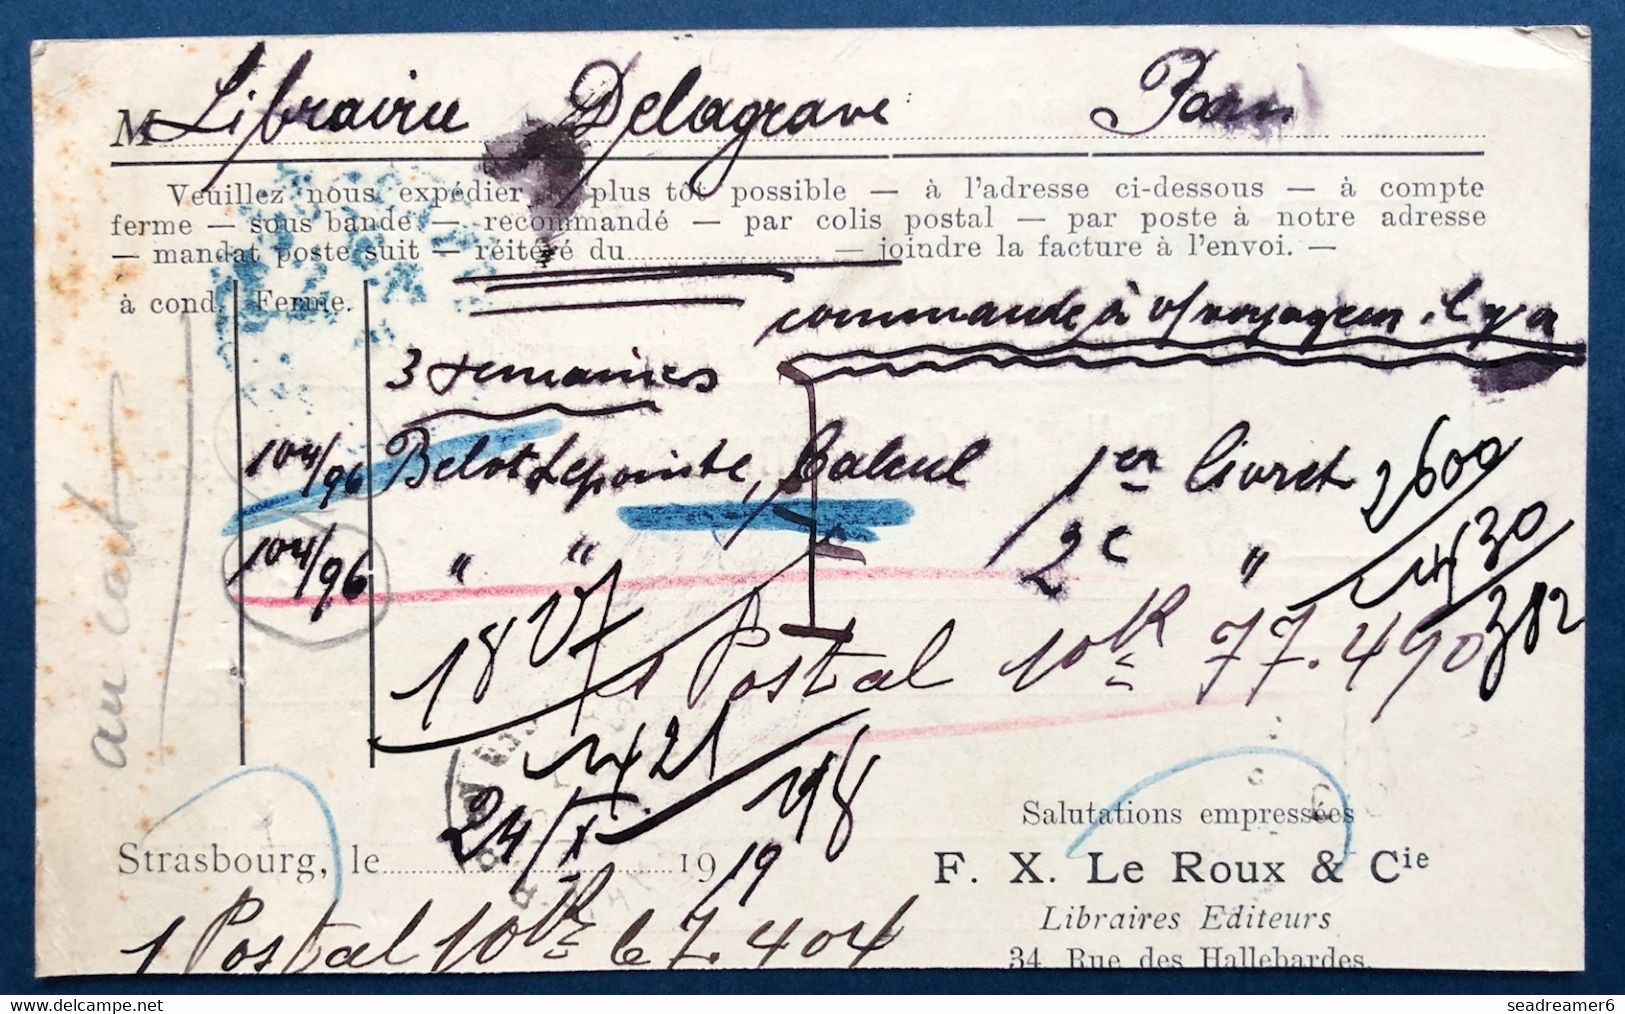 M Librairie Delagrave Paris
Veuillez nous expédier le plus tôt possible — à l'adresse ci-dessous — à compte
ferme — sous bande — recommandé — par colis postal — par poste à notre adresse
— mandat poste suit — réitéré du — joindre la facture à l'envoi. —
à cond. Ferme.
commande à v/voyageur il y a
3 semaines
104/96 Belot Lepointe, Calcul 1er livret 2600
104/96 " " 2e " 1430
1 Postal 10 k 77.490 382
1827
1421
198
au cart
Salutations empressées
Strasbourg, le 24/X 1919
F. X. Le Roux & Cie
Libraires Editeurs
34 Rue des Hallebardes.
1 Postal 10 k le 7.404
© seadreamer6 | www.delcampe.net